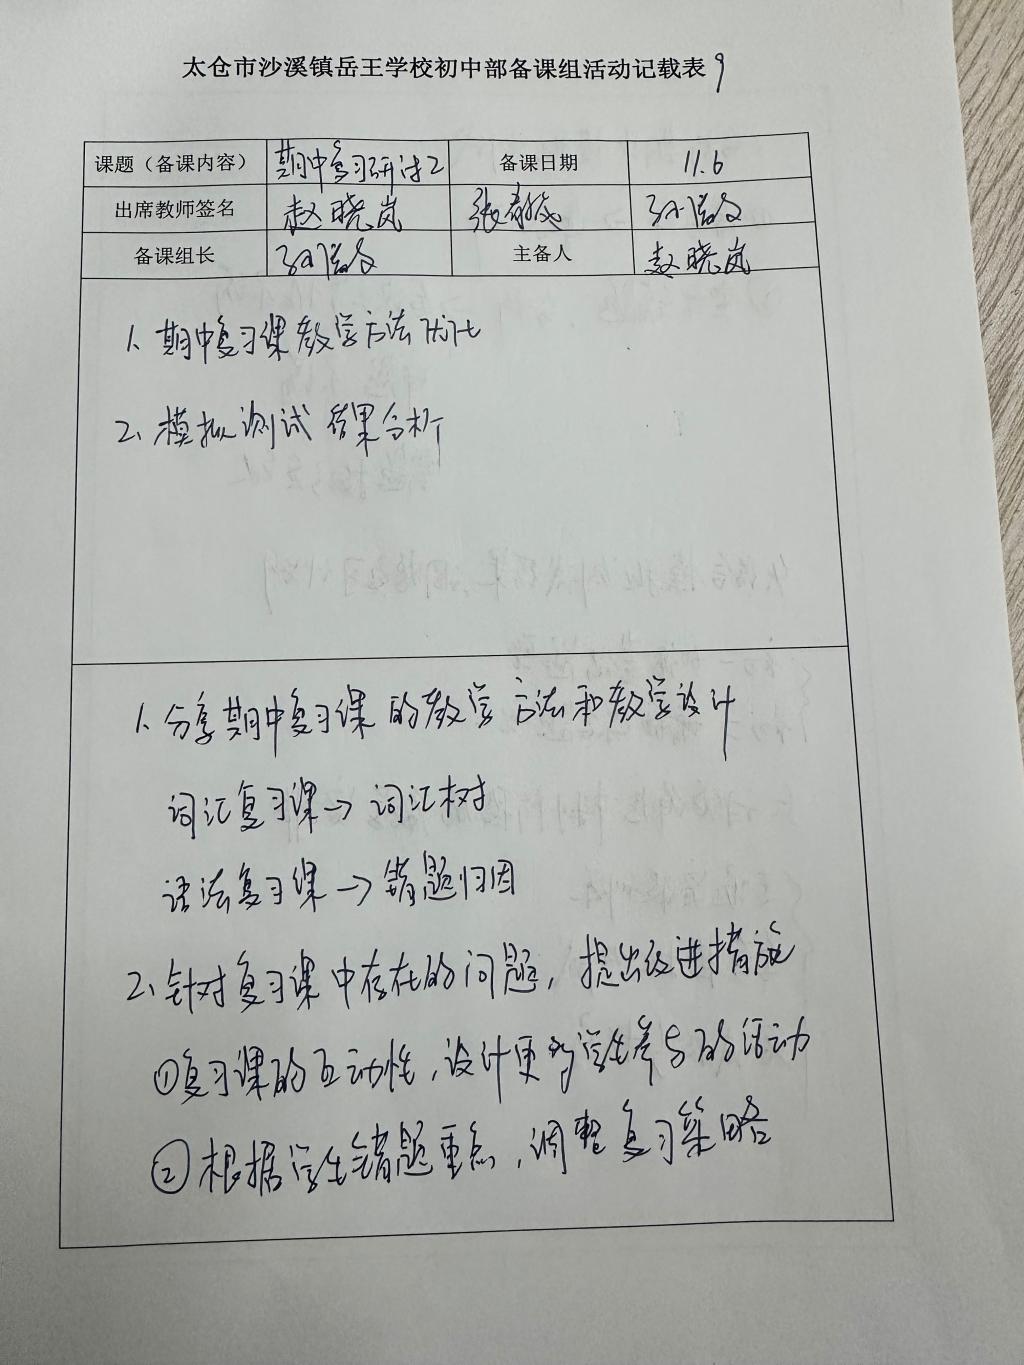 太仓市沙溪镇岳王学校初中部备课组活动记载表 9
课题（备课内容） 期中复习研讨2 备课日期 11.6
出席教师签名 赵晓岚 张
备课组长 主备人 赵晓岚
1、期中复习课教学方法优化
2、模拟测试结果分析
1、分享期中复习课的教学方法和教学设计
词汇复习课→词汇树
语法复习课→错题归因
2、针对复习课中存在的问题，提出改进措施
①复习课的互动性，设计更多学生参与的活动
②根据学生错题重点，调整复习策略